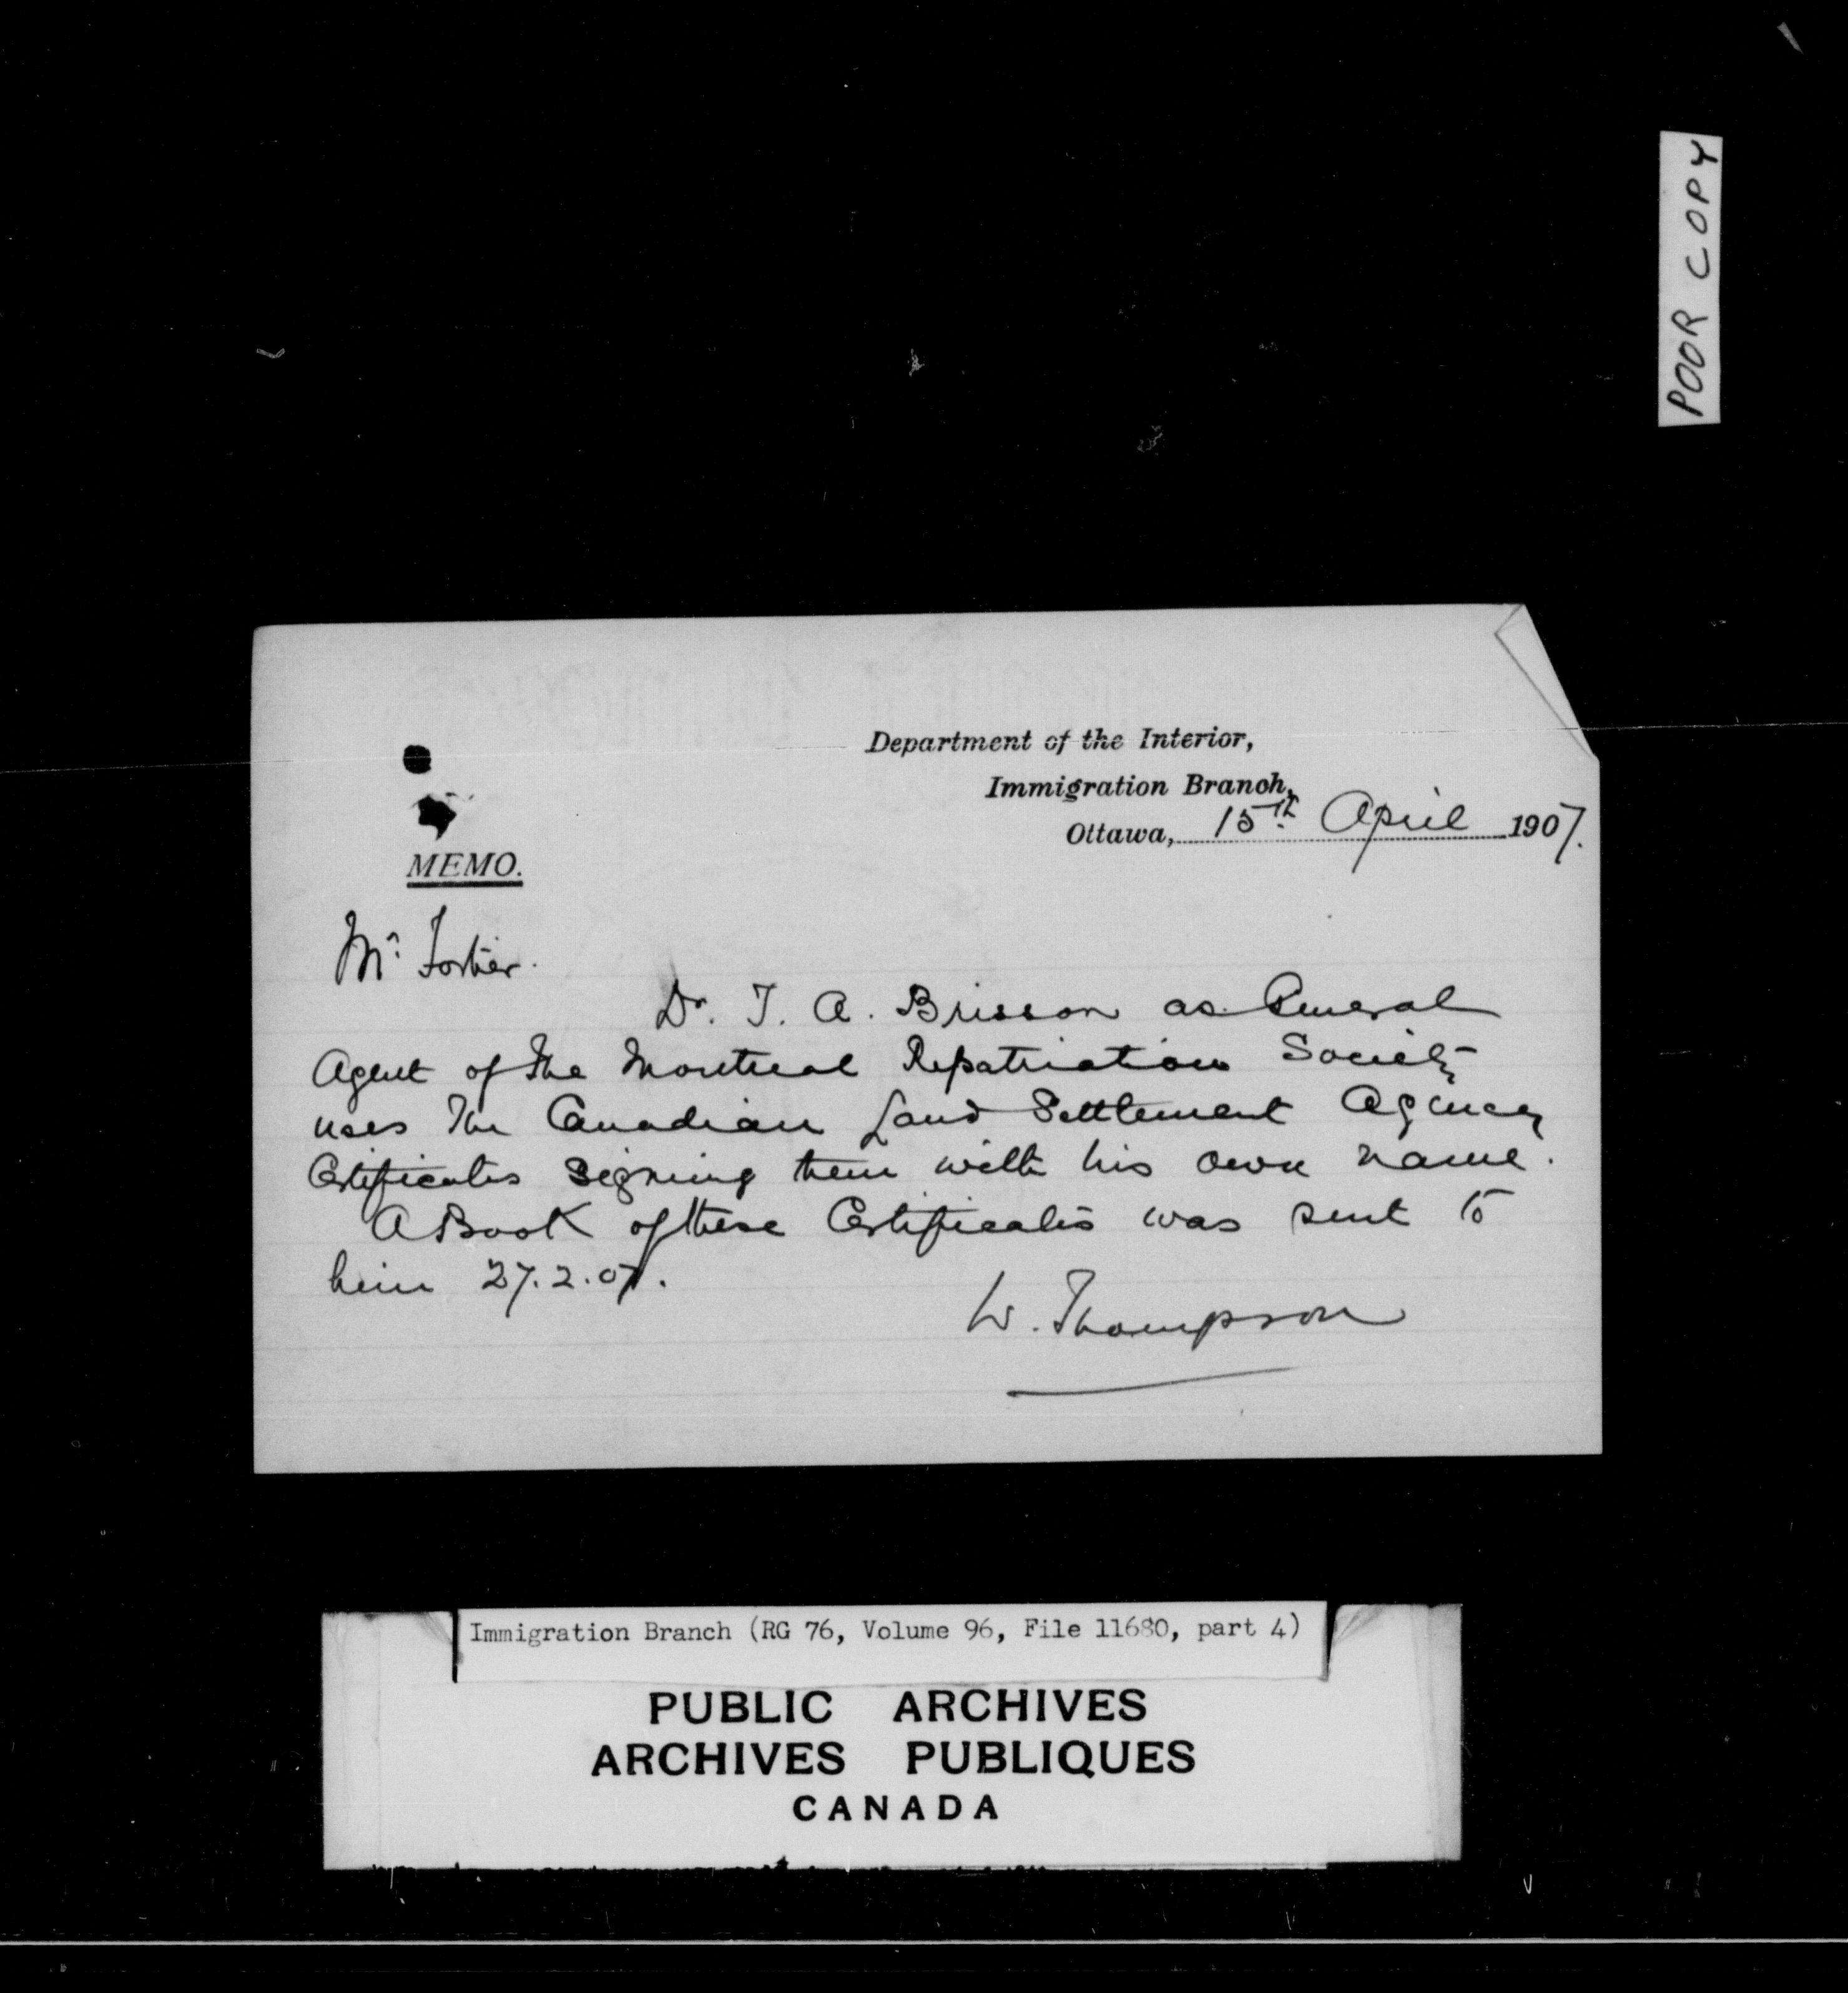 POOR COPY
Department of the Interior,
Immigration Branch,
Ottawa, 15th April 1907.
MEMO.
Mr. Fortier.
Dr. T. A. Brisson as General
Agent of the Montreal Repatriation Society
uses the Canadian Land Settlement Agency
Certificates signing them with his own name.
A Book of these Certificates was sent to
him 27.2.07.
W. Thompson
Immigration Branch (RG 76, Volume 96, File 11680, part 4)
PUBLIC ARCHIVES
ARCHIVES PUBLIQUES
CANADA